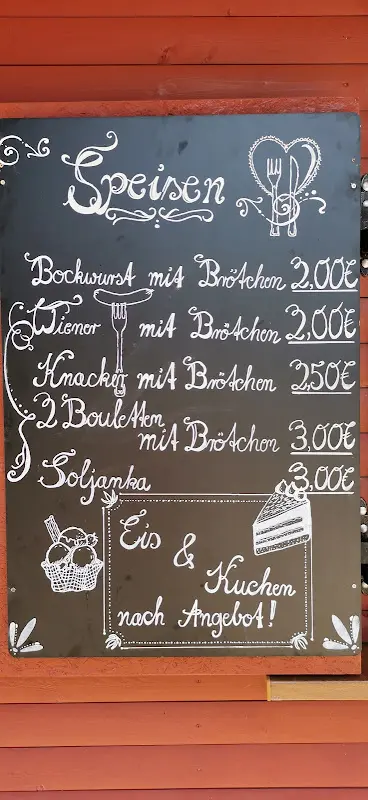 Speisen
Bockwurst mit Brötchen 2,00€
Wiener mit Brötchen 2,00€
Knacker mit Brötchen 2,50€
2 Bouletten
mit Brötchen 3,00€
Soljanka 3,00€
Eis
&
Kuchen
nach Angebot!